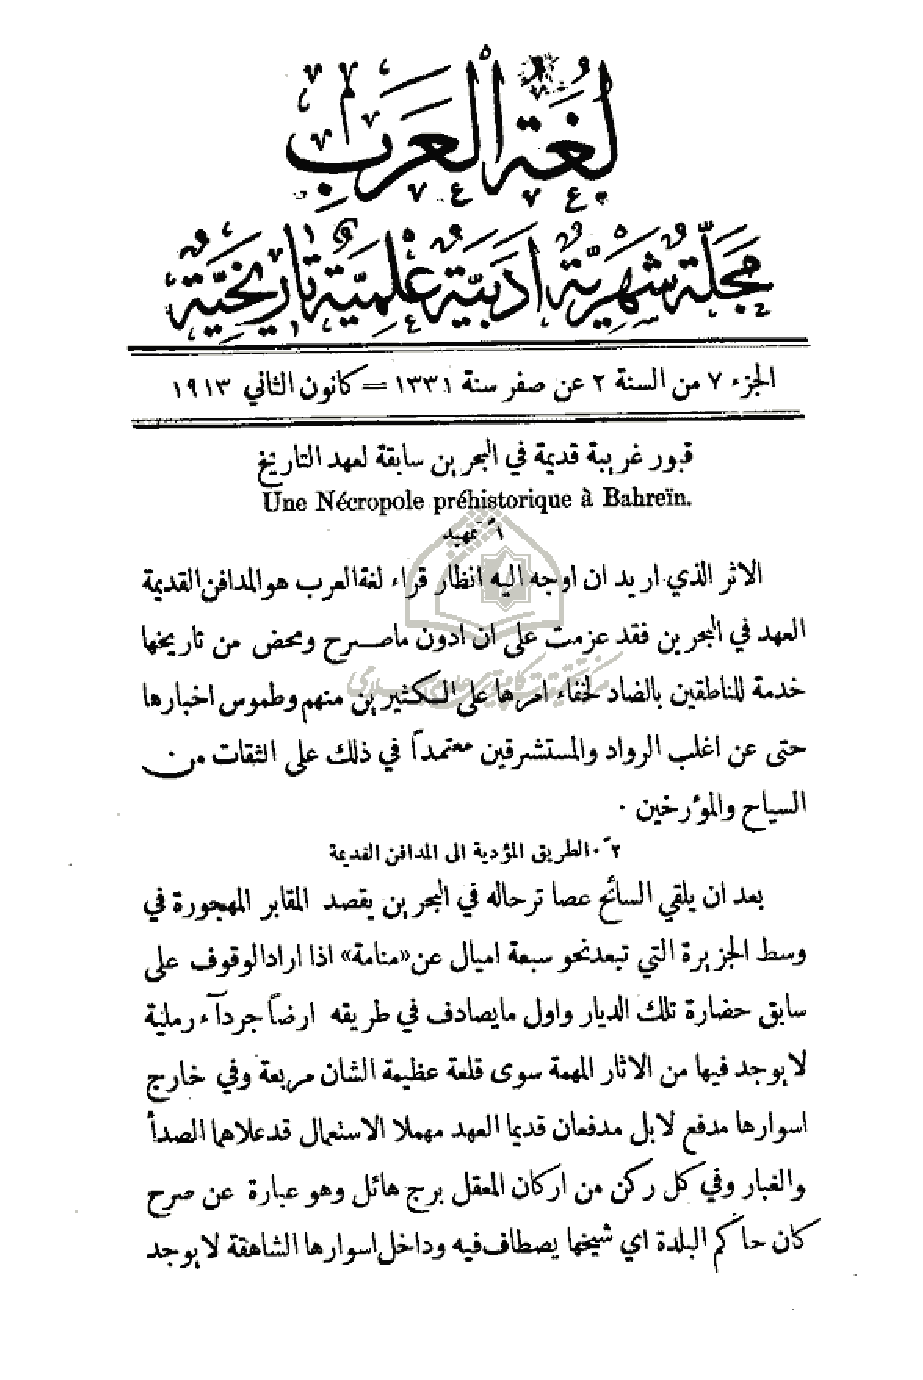 لُغَةُ الْعَرَبِ
مَجَلَّةٌ شَهْرِيَّةٌ أَدَبِيَّةٌ عِلْمِيَّةٌ تَارِيخِيَّةٌ
الجزء ٧ من السنة ٢ عن صفر سنة ١٣٣١ = كانون الثاني ١٩١٣
قبور غريبة قديمة في البحرين سابقة لعهد التاريخ
Une Nécropole préhistorique à Bahreïn.
١ً تمهيد
الاثر الذي اريد ان اوجه اليه انظار قراء لغة العرب هو المدافن القديمة
العهد في البحرين فقد عزمت على ان ادون ما صرح ومحض من تاريخها
خدمة للناطقين بالضاد لخفاء امرها على الكثيرين منهم وطموس اخبارها
حتى عن اغلب الرواد والمستشرقين معتمداً في ذلك على الثقات من
السياح والمؤرخين ·
٢ً ٠ الطريق المؤدية الى المدافن القديمة
بعد ان يلقي السائح عصا ترحاله في البحرين يقصد المقابر المهجورة في
وسط الجزيرة التي تبعد نحو سبعة اميال عن «منامة» اذا اراد الوقوف على
سابق حضارة تلك الديار واول ما يصادف في طريقه ارضاً جردآء رملية
لا يوجد فيها من الاثار المهمة سوى قلعة عظيمة الشان مربعة وفي خارج
اسوارها مدفع لا بل مدفعان قديما العهد مهملا الاستعمال قد علاهما الصدأ
والغبار وفي كل ركن من اركان المعقل برج هائل وهو عبارة عن صرح
كان حاكم البلدة اي شيخها يصطاف فيه وداخل اسوارها الشاهقة لا يوجد